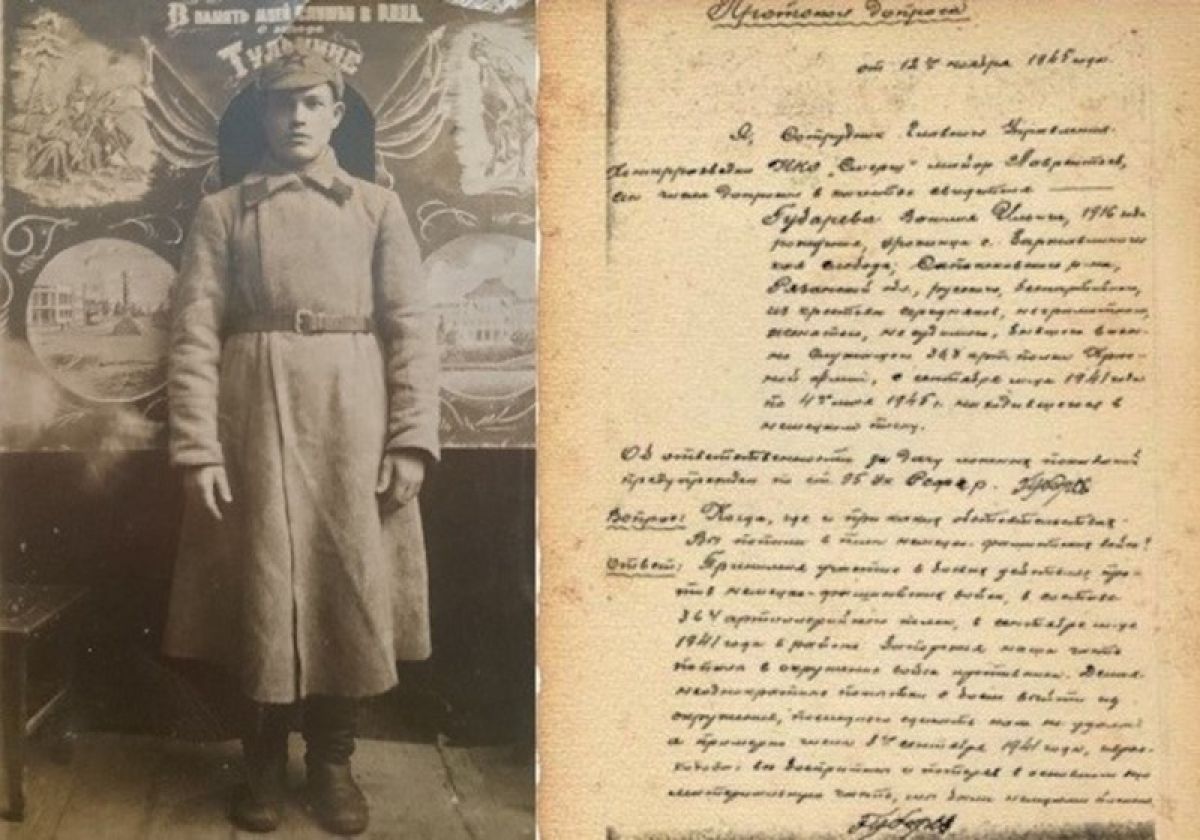 В память моей службы в
Тульчине
Протокол допроса
от 12 го ноября 1945 года.
Я, Сотрудник Главного Управления
Контрразведки НКО "Смерш" майор Лаврентьев,
сего числа допросил в качестве свидетеля
Губарева Ильича, 1916 года
рождения, уроженца с.
слобода, р-на,
Рязанской обл., русского, беспартийного,
из крестьян середняков, неграмотного,
женатого, не судимого, бывшего военно
служащего 364 арт. полка Крас-
ной армии, с сентября м-ца 1941 года
по 4е мая 1945 г. находившегося в
немецком плену.
Об ответственности за дачу ложных показаний
предупрежден по ст. 95 УК РСФСР. Губарев
Вопрос: Когда, где и при каких обстоятельствах
Вы попали в плен немецко-фашистских войск?
Ответ: Принимая участие в боевых действиях про-
тив немецко-фашистских войск, в составе
364 артиллерийского полка, в сентябре м-це
1941 года в районе наша часть
попала в окружение войск противника. Делая
неоднократные попытки с боем выйти из
окружения, последнего сделать нам не удалось
а примерно числа сентября 1941 года,
боеприпасы и потеряв в основном
материальную часть, мы были немцами пленены
Губарев